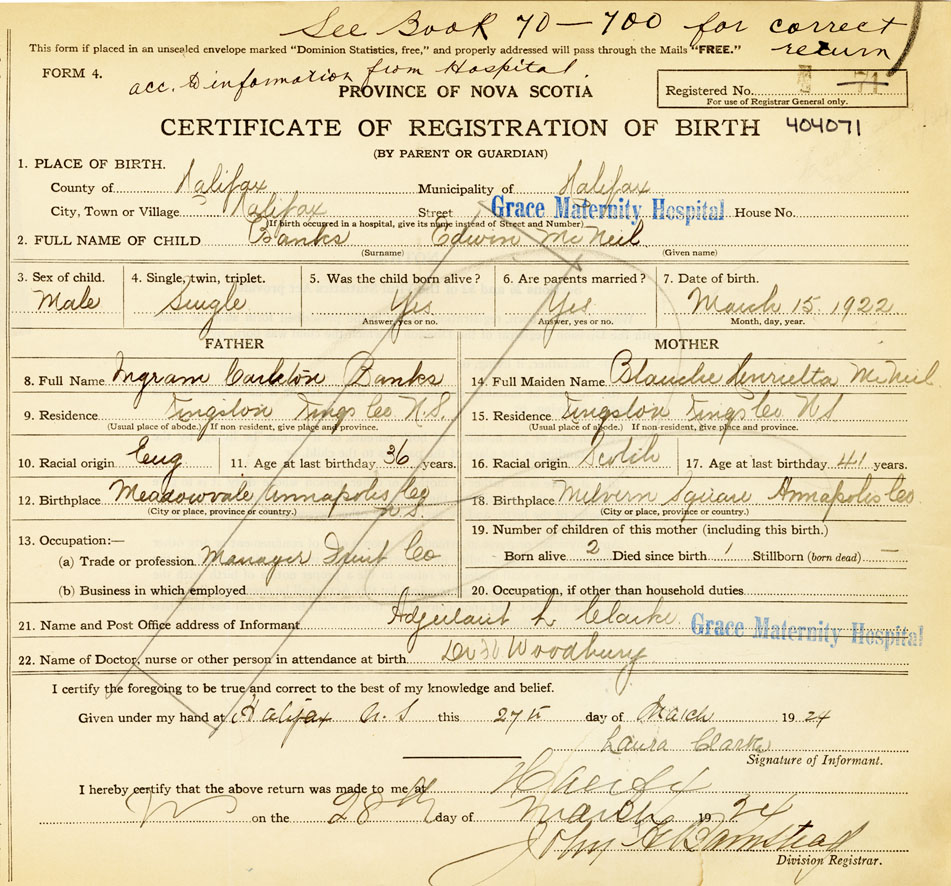 See Book 70-700 for correct
return
This form if placed in an unsealed envelope marked "Dominion Statistics, free," and properly addressed will pass through the Mails "FREE."
FORM 4.
acc. to information from Hospital.
PROVINCE OF NOVA SCOTIA
Registered No. 71
For use of Registrar General only.
CERTIFICATE OF REGISTRATION OF BIRTH 404071
(BY PARENT OR GUARDIAN)
1. PLACE OF BIRTH.
County of Halifax Municipality of Halifax
City, Town or Village Halifax Street Grace Maternity Hospital House No.
(If birth occurred in a hospital, give its name instead of Street and Number)
2. FULL NAME OF CHILD Banks Edwin McNeil
(Surname) (Given name)
3. Sex of child. 4. Single, twin, triplet. 5. Was the child born alive? 6. Are parents married? 7. Date of birth.
Male Single Yes Yes March 15 1922
Answer, yes or no. Answer, yes or no. Month, day, year.
FATHER MOTHER
8. Full Name Ingram Carleton Banks 14. Full Maiden Name Blanche Henrietta McNeil
9. Residence Kingston Kings Co N.S. 15. Residence Kingston Kings Co NS
(Usual place of abode.) If non resident, give place and province. (Usual place of abode.) If non-resident, give place and province.
10. Racial origin Eng 11. Age at last birthday 36 years. 16. Racial origin Scotch 17. Age at last birthday 41 years.
12. Birthplace Meadowvale Annapolis Co N.S. 18. Birthplace Melvern Square Annapolis Co.
(City or place, province or country.) (City or place, province or country.)
13. Occupation:— 19. Number of children of this mother (including this birth.)
(a) Trade or profession Manager Fruit Co Born alive 2 Died since birth 1 Stillborn (born dead) —
(b) Business in which employed 20. Occupation, if other than household duties
21. Name and Post Office address of Informant. Adjutant L Clarke Grace Maternity Hospital
22. Name of Doctor, nurse or other person in attendance at birth Dr Woodbury
I certify the foregoing to be true and correct to the best of my knowledge and belief.
Given under my hand at Halifax N.S this 27th day of March 1924
Laura Clarke
Signature of Informant.
I hereby certify that the above return was made to me at
on the 28th day of March 1924
John
Division Registrar.